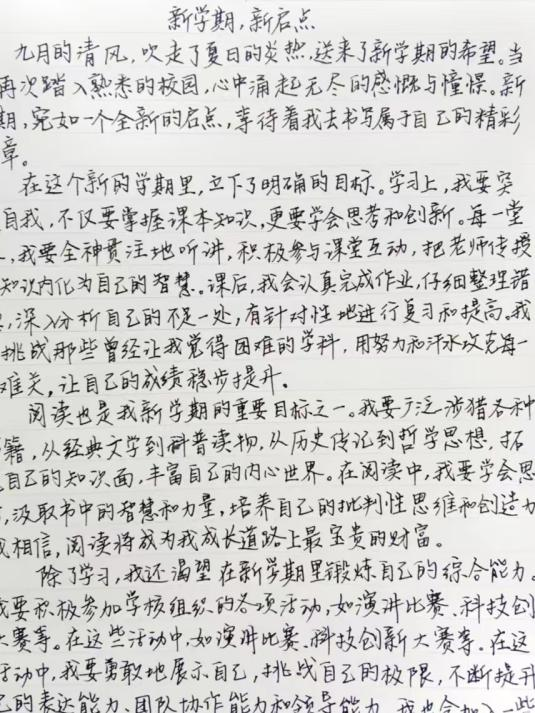 新学期,新启点
九月的清风,吹走了夏日的炎热,送来了新学期的希望。当
再次踏入熟悉的校园,心中涌起无尽的感慨与憧憬。新
期,宛如一个全新的启点,等待着我去书写属于自己的精彩
章。
在这个新的学期里,立下了明确的目标。学习上,我要突
自我,不仅要掌握课本知识,更要学会思考和创新。每一堂
,我要全神贯注地听讲,积极参与课堂互动,把老师传授
知识内化为自己的智慧。课后,我会认真完成作业,仔细整理错
,深入分析自己的不足一处,有针对性地进行复习和提高。我
挑战那些曾经让我觉得困难的学科,用努力和汗水攻克每一
难关,让自己的成绩稳步提升。
阅读也是我新学期的重要目标之一。我要广泛涉猎各种
籍,从经典文学到科普读物,从历史传记到哲学思想,拓
自己的知识面,丰富自己的内心世界。在阅读中,我要学会思
,汲取书中的智慧和力量,培养自己的批判性思维和创造力
我相信,阅读将成为我成长道路上最宝贵的财富。
除了学习,我还渴望在新学期里锻炼自己的综合能力。
我要积极参加学校组织的各项活动,如演讲比赛、科技创
大赛等。在这些活动中,如演讲比赛、科技创新大赛等。在这
活动中,我要勇敢地展示自己,挑战自己的极限,不断提升
己的表达能力、团队协作能力和领导能力。我也会加入一些